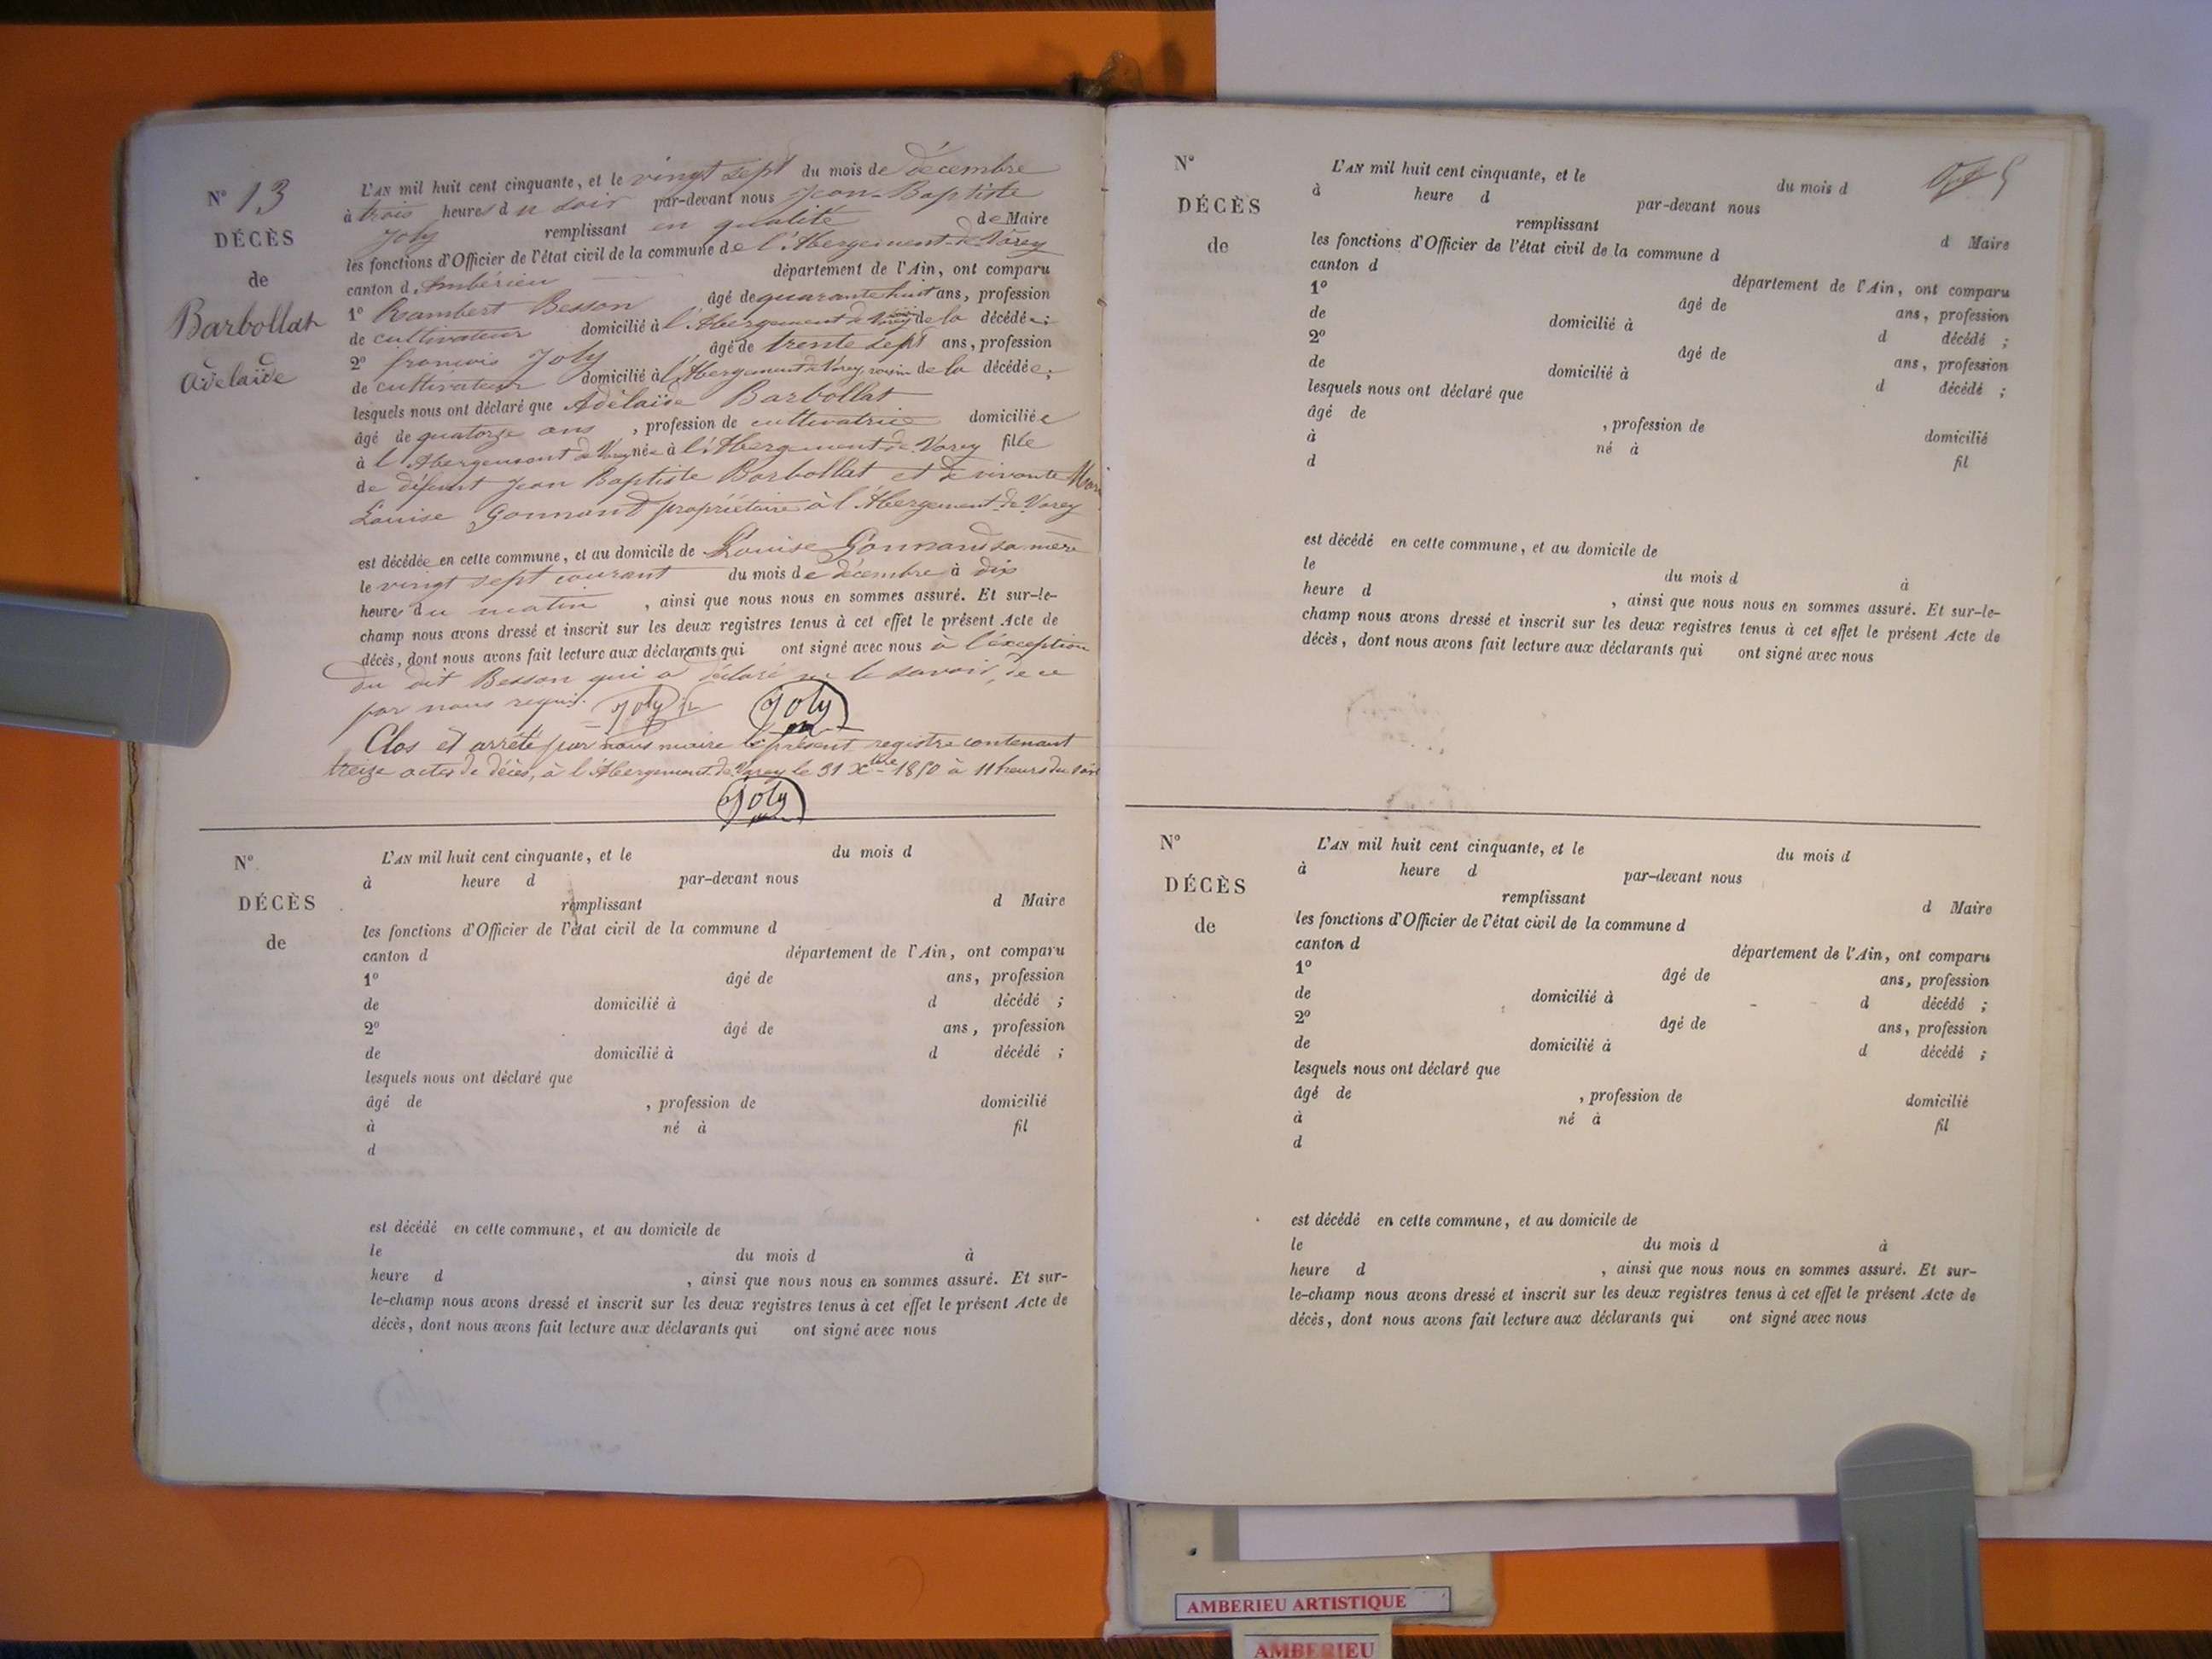 N° 13
DÉCÈS
de
Barbollat
Adelaïde
L'AN mil huit cent cinquante, et le vingt sept du mois de décembre
à trois heures du soir par-devant nous Jean-Baptiste
Joly remplissant en qualité de Maire
les fonctions d'Officier de l'état civil de la commune de l'Abergement-de-Varey
canton d'Ambérieu département de l'Ain, ont comparu
1° Rambert Besson âgé de quarante huit ans, profession
de cultivateur domicilié à l'Abergement de Varey voisin de la décédée;
2° françois Joly âgé de trente sept ans, profession
de cultivateur domicilié à l'Abergement de Varey voisin de la décédée;
lesquels nous ont déclaré que Adélaïse Barbollat
âgé de quatorze ans, profession de cultivatrice domiciliée
à l'Abergement de Varey née à l'Abergement de Varey fille
de défunt Jean Baptiste Barbollat et de vivante Mari
Louise Gonnand propriétaire à l'Abergement-de-Varey
est décédée en cette commune, et au domicile de Louise Gonnand sa mère
le vingt sept courant du mois de décembre à dix
heures du matin, ainsi que nous nous en sommes assuré. Et sur-le-
champ nous avons dressé et inscrit sur les deux registres tenus à cet effet le présent Acte de
décès, dont nous avons fait lecture aux déclarants qui ont signé avec nous à l'éxception
du dit Besson qui a déclaré ne le savoir, de ce
par nous requis. Joly Joly
Clos et arrêté par nous maire le présent registre contenant
treize actes de décès, à l'Abergement-de-Varey le 31 Xbre 1850 à 11 heurs du soir
Joly
N°
DÉCÈS
de
L'AN mil huit cent cinquante, et le du mois d
à heure d par-devant nous
remplissant d Maire
les fonctions d'Officier de l'état civil de la commune d
canton d département de l'Ain, ont comparu
1° âgé de ans, profession
de domicilié à d décédé ;
2° âgé de ans, profession
de domicilié à d décédé ;
lesquels nous ont déclaré que
âgé de , profession de domicilié
à né à fil
d
est décédé en cette commune, et au domicile de
le du mois d à
heure d , ainsi que nous nous en sommes assuré. Et sur-
le-champ nous avons dressé et inscrit sur les deux registres tenus à cet effet le présent Acte de
décès, dont nous avons fait lecture aux déclarants qui ont signé avec nous
N°
DÉCÈS
de
L'AN mil huit cent cinquante, et le du mois d
à heure d par-devant nous
remplissant d Maire
les fonctions d'Officier de l'état civil de la commune d
canton d département de l'Ain, ont comparu
1° âgé de ans, profession
de domicilié à d décédé ;
2° âgé de ans, profession
de domicilié à d décédé ;
lesquels nous ont déclaré que
âgé de , profession de domicilié
à né à fil
d
est décédé en cette commune, et au domicile de
le du mois d à
heure d , ainsi que nous nous en sommes assuré. Et sur-le-
champ nous avons dressé et inscrit sur les deux registres tenus à cet effet le présent Acte de
décès, dont nous avons fait lecture aux déclarants qui ont signé avec nous
N°
DÉCÈS
de
L'AN mil huit cent cinquante, et le du mois d
à heure d par-devant nous
remplissant d Maire
les fonctions d'Officier de l'état civil de la commune d
canton d département de l'Ain, ont comparu
1° âgé de ans, profession
de domicilié à d décédé ;
2° âgé de ans, profession
de domicilié à d décédé ;
lesquels nous ont déclaré que
âgé de , profession de domicilié
à né à fil
d
est décédé en cette commune, et au domicile de
le du mois d à
heure d , ainsi que nous nous en sommes assuré. Et sur-
le-champ nous avons dressé et inscrit sur les deux registres tenus à cet effet le présent Acte de
décès, dont nous avons fait lecture aux déclarants qui ont signé avec nous
AMBERIEU ARTISTIQUE
AMBERIEU